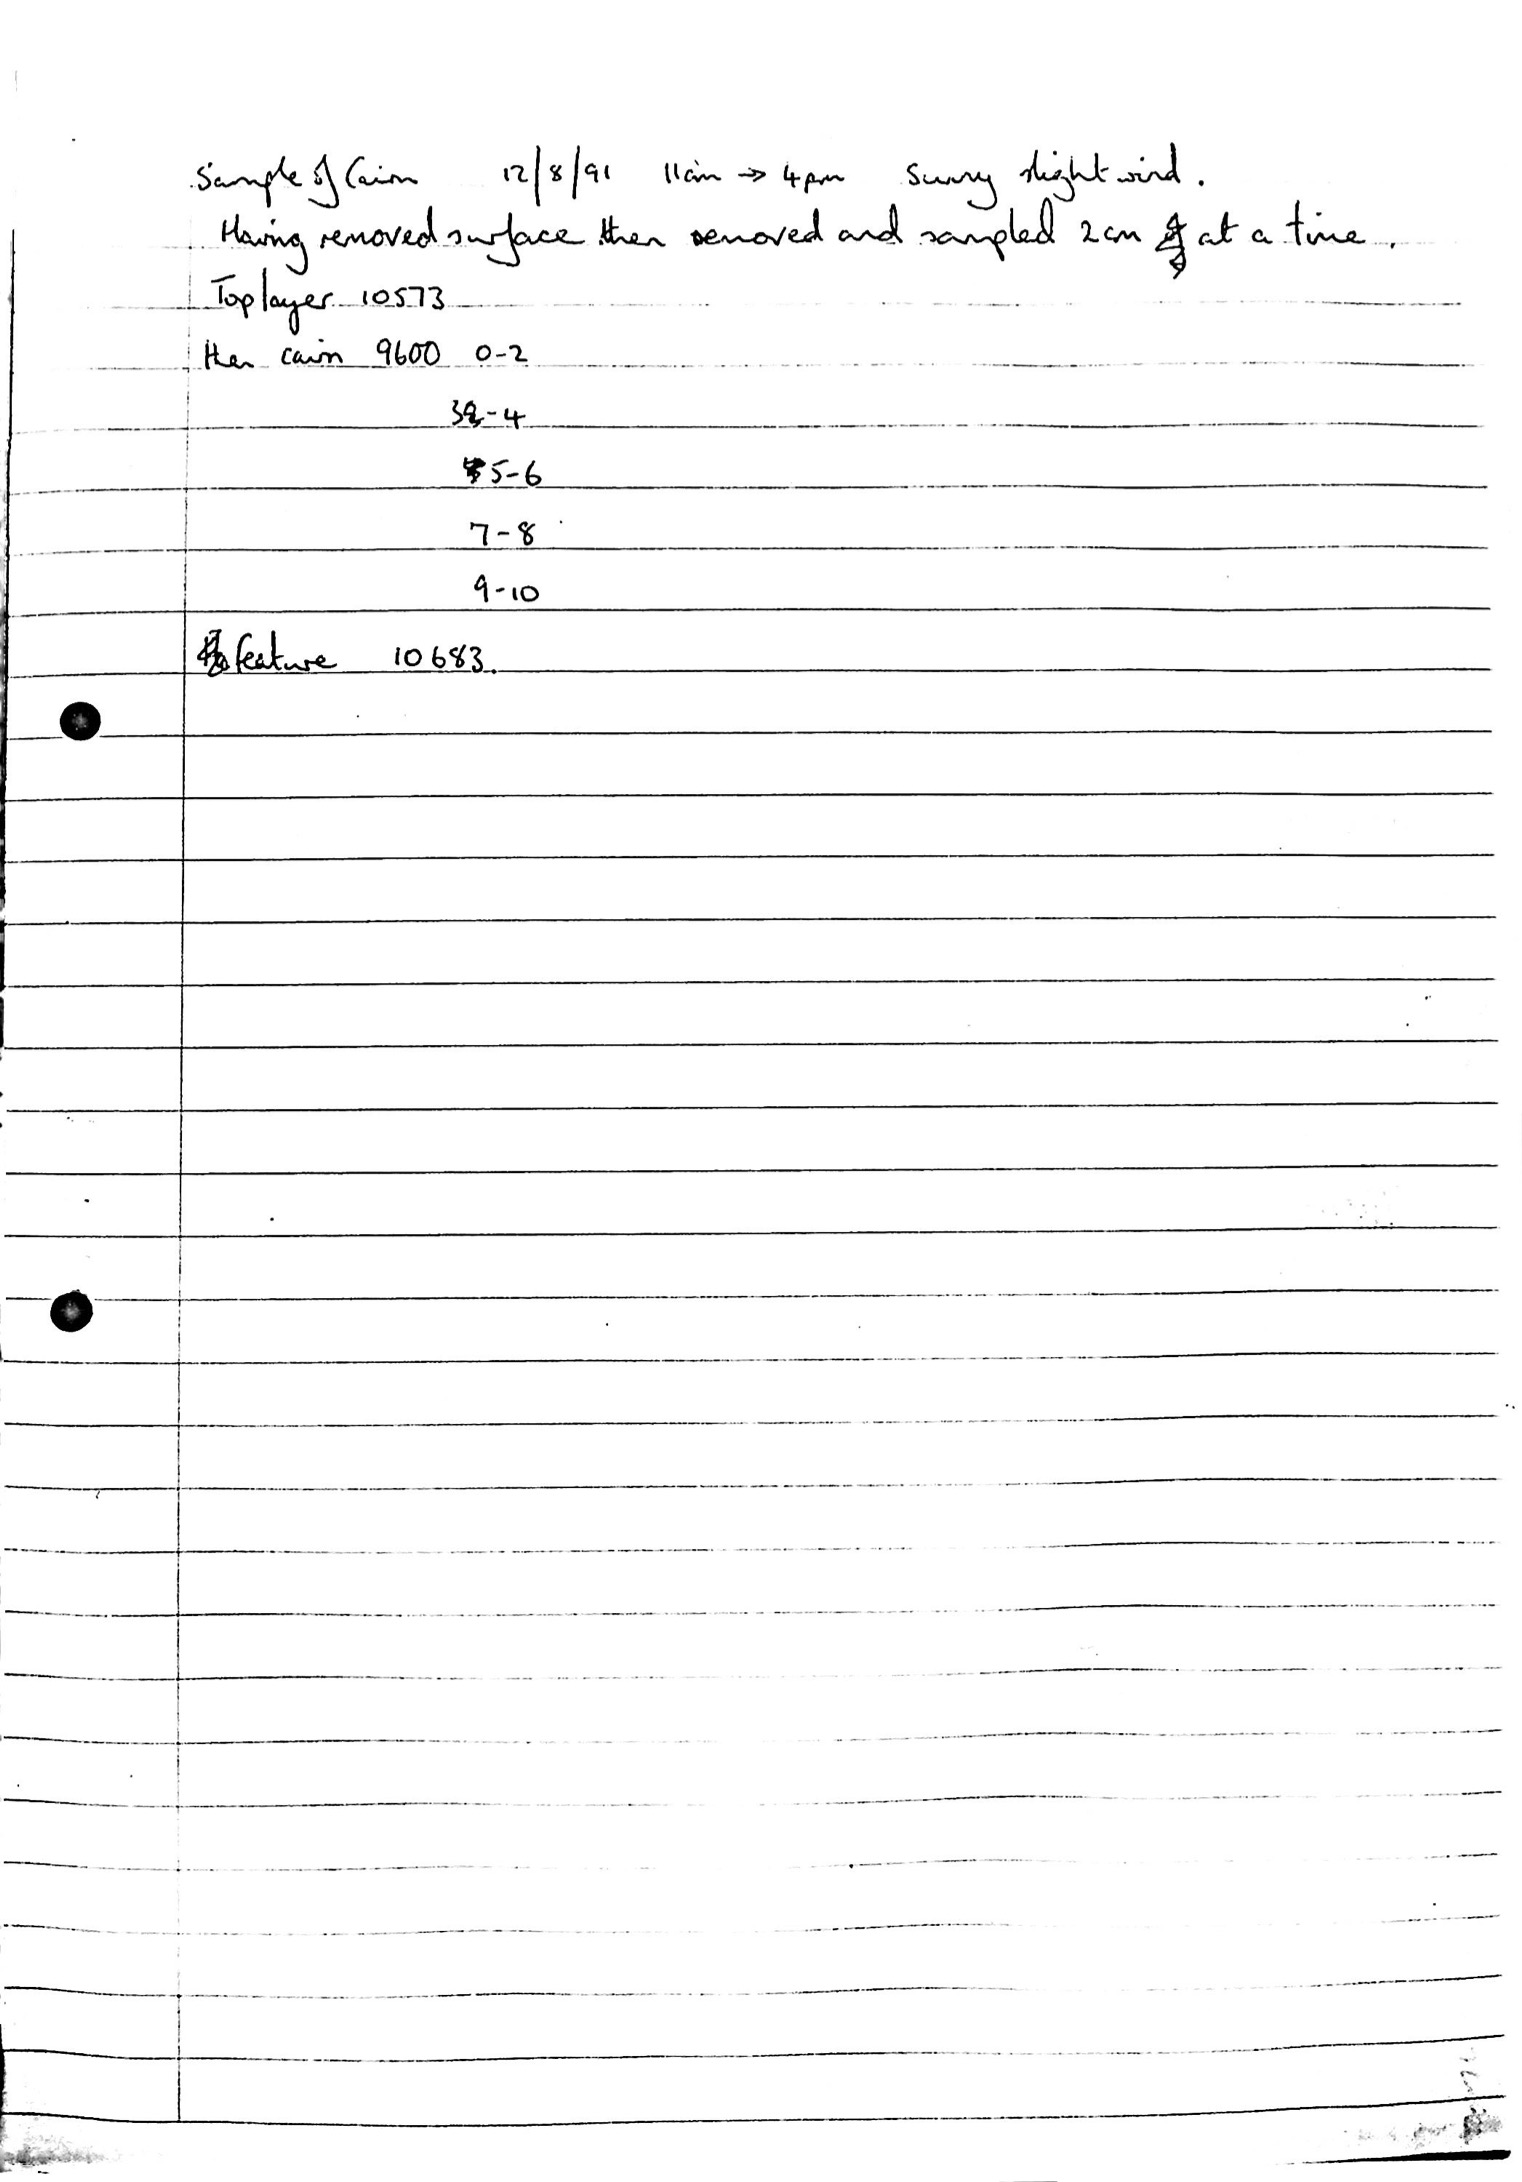 Sample of Cairn 12/8/91 11am → 4pm Sunny slight wind.
Having removed surface then removed and sampled 2cm at a time.
Top layer 10573
then cairn 9600 0-2
3-4
5-6
7-8
9-10
feature 10683.